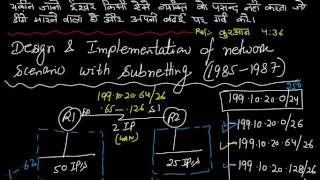 यकीन जानो ईश्वर किसी ऐसे व्यक्ति को पसन्द नहीं करता जो
डींगे मारने वाला है और अपनी बड़ाई पर गर्व करे।
Ref:- कुरआन 4:36
Design & Implementation of network
Scenario with Subnetting (1985-1987)
199.10.20.64/26
.65 — .126
256
199.10.20.0/24
R1
S0
S1
R2
2 IP
(WAN)
199.10.20.0/26
199.10.20.64/26
199.10.20.128/26
1-62
50 IP's
25 IP's